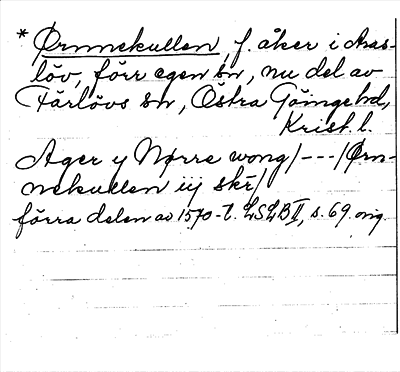 * Ørnnekullen, f. åker i Aras-
löv, förr egen sn, nu del av
Färlövs sn, Östra Göinge hd,
Krist. l.
Ager y Nørre wong/---/Ørn-
nekullen iij skr/
förra delen av 1570-t. LSLB II, s. 69. orig.